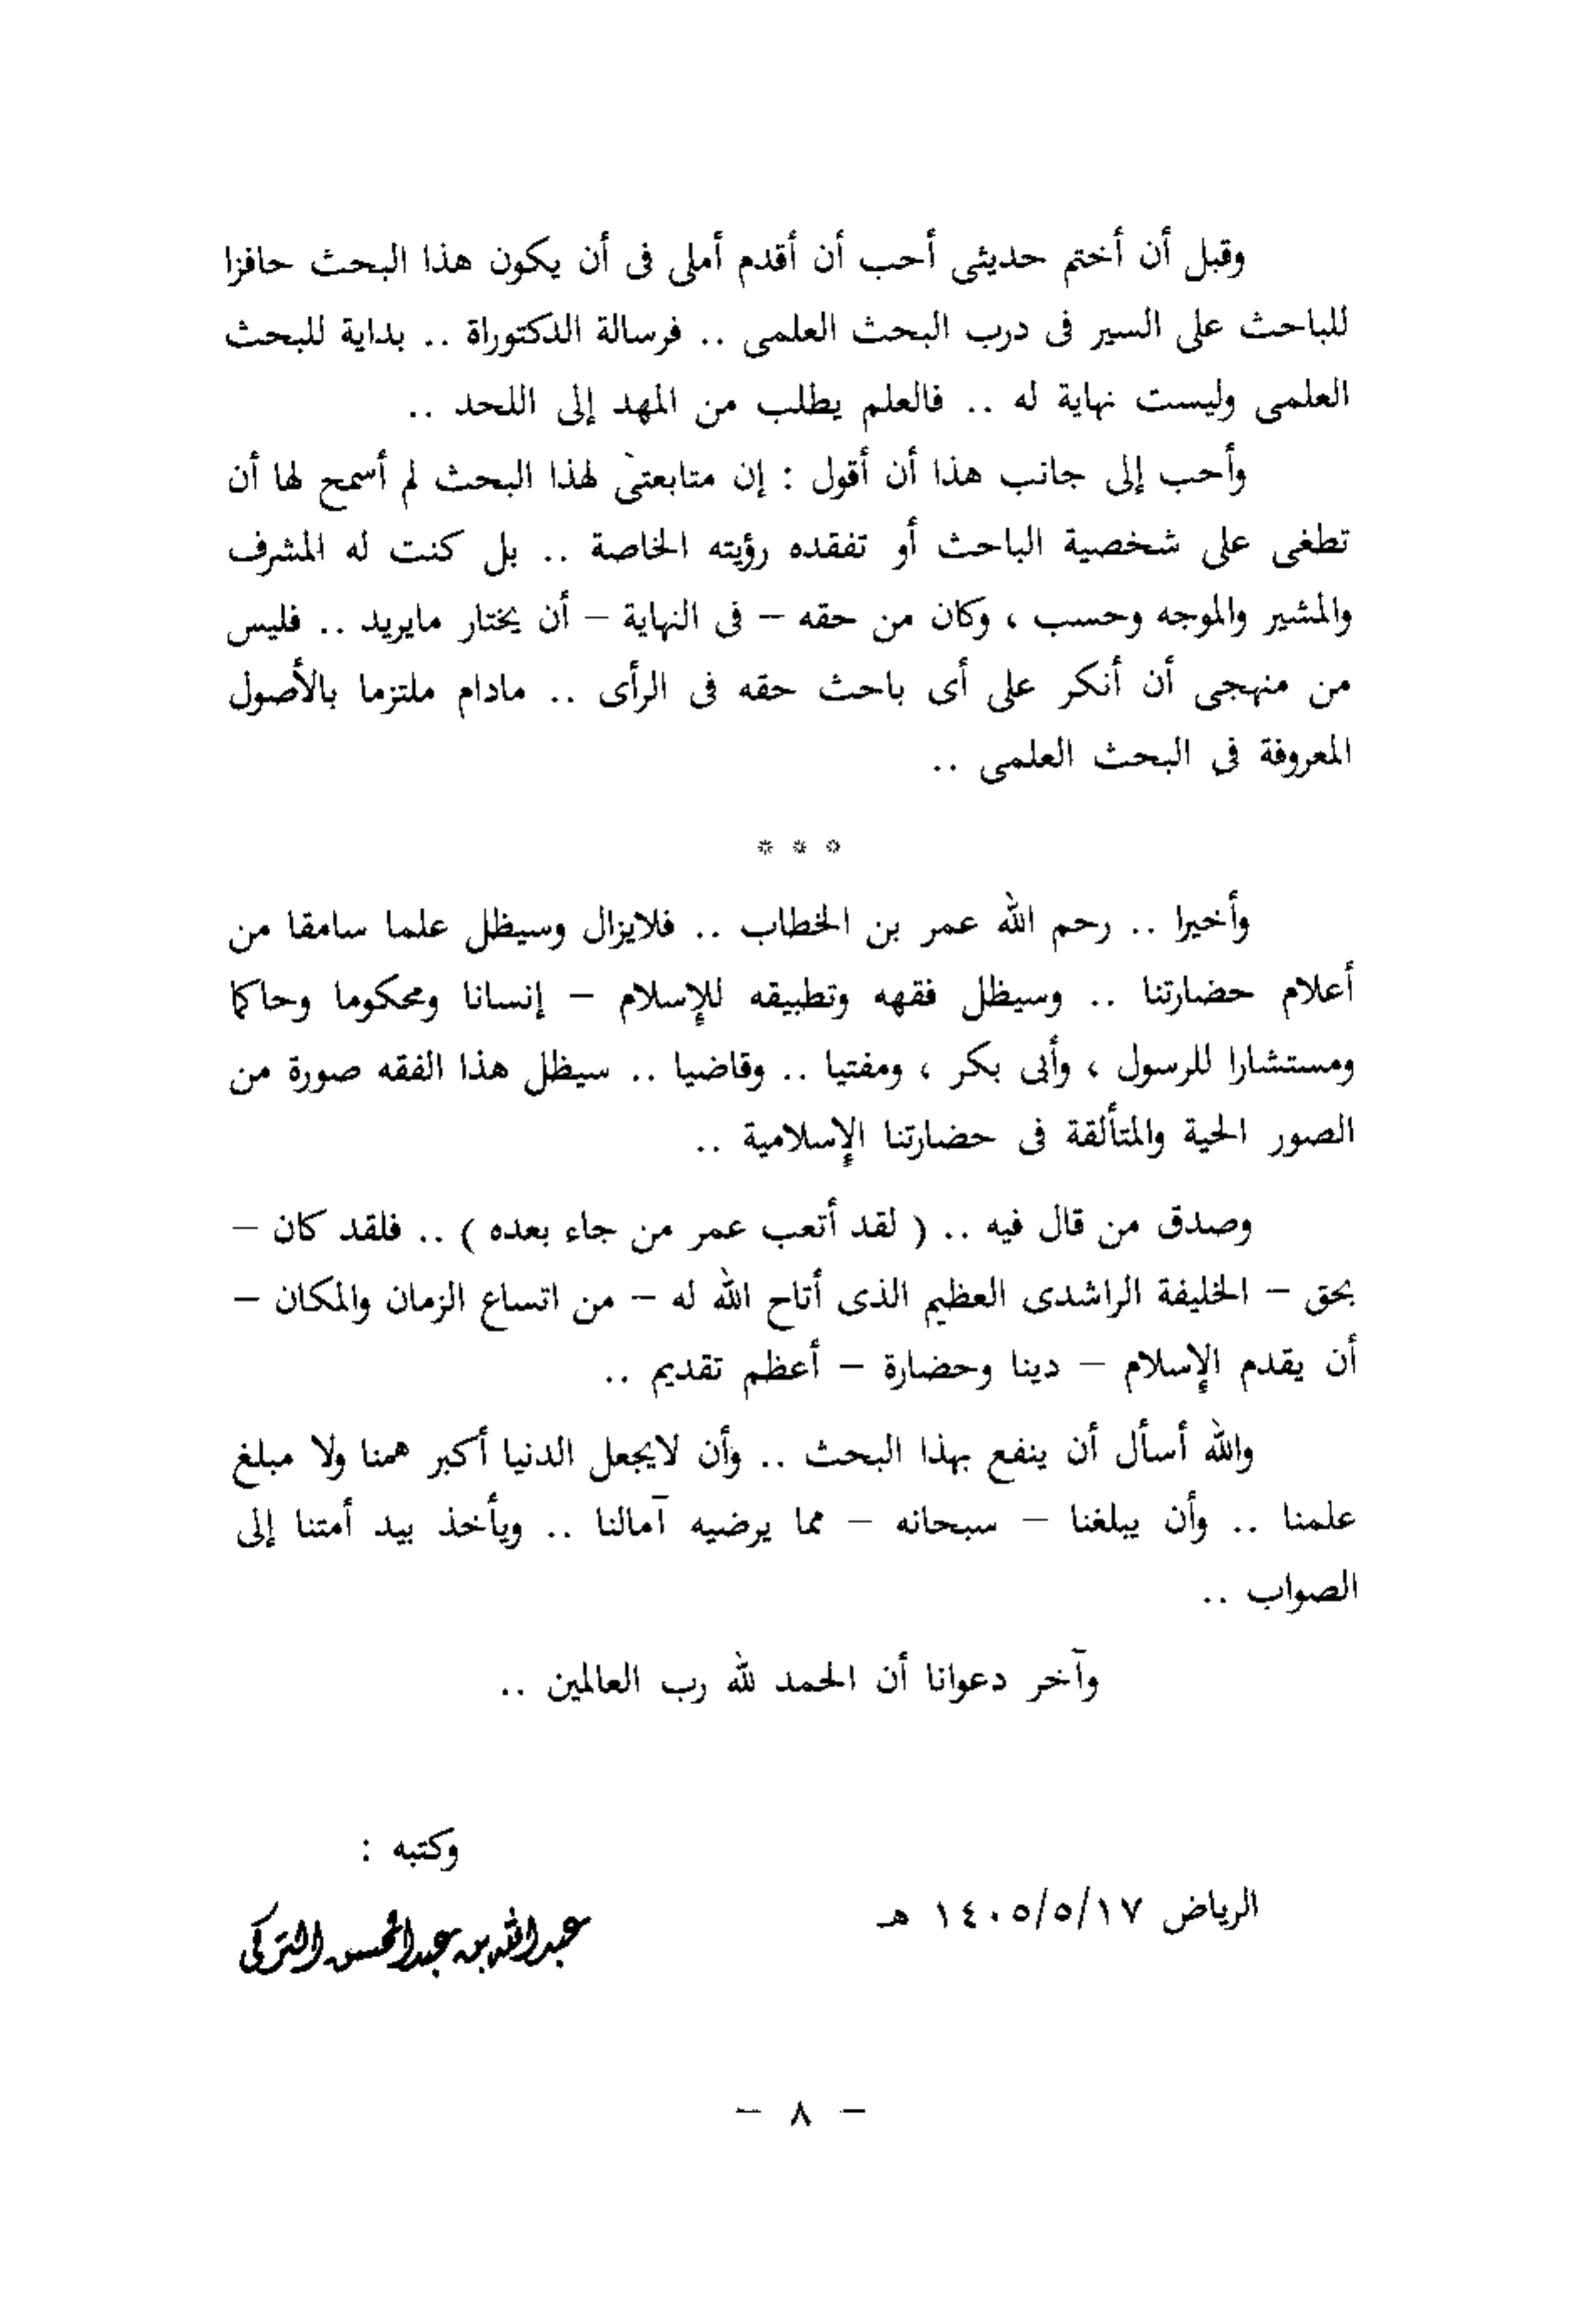 وقبل أن أختم حديثى أحب أن أقدم أملى فى أن يكون هذا البحث حافزا
للباحث على السير فى درب البحث العلمى .. فرسالة الدكتوراة .. بداية للبحث
العلمى وليست نهاية له .. فالعلم يطلب من المهد إلى اللحد ..
وأحب إلى جانب هذا أن أقول : إن متابعتى لهذا البحث لم أسمح لها أن
تطغى على شخصية الباحث أو تفقده رؤيته الخاصة .. بل كنت له المشرف
والمشير والموجه وحسب ، وكان من حقه – فى النهاية – أن يختار مايريد .. فليس
من منهجى أن أنكر على أى باحث حقه فى الرأى .. مادام ملتزما بالأصول
المعروفة فى البحث العلمى ..
* * *
وأخيرا .. رحم الله عمر بن الخطاب .. فلايزال وسيظل علما سامقا من
أعلام حضارتنا .. وسيظل فقهه وتطبيقه للإسلام – إنسانا ومحكوما وحاكما
ومستشارا للرسول ، وأبى بكر ، ومفتيا .. وقاضيا .. سيظل هذا الفقه صورة من
الصور الحية والمتألقة فى حضارتنا الإسلامية ..
وصدق من قال فيه .. ( لقد أتعب عمر من جاء بعده ) .. فلقد كان –
بحق – الخليفة الراشدى العظيم الذى أتاح الله له – من اتساع الزمان والمكان –
أن يقدم الإسلام – دينا وحضارة – أعظم تقديم ..
والله أسأل أن ينفع بهذا البحث .. وأن لايجعل الدنيا أكبر همنا ولا مبلغ
علمنا .. وأن يبلغنا – سبحانه – مما يرضيه آمالنا .. ويأخذ بيد أمتنا إلى
الصواب ..
وآخر دعوانا أن الحمد لله رب العالمين ..
وكتبه :
الرياض ١٤٠٥/٥/١٧ هـ
عبدالله بن عبدالمحسن التركى
– ٨ –